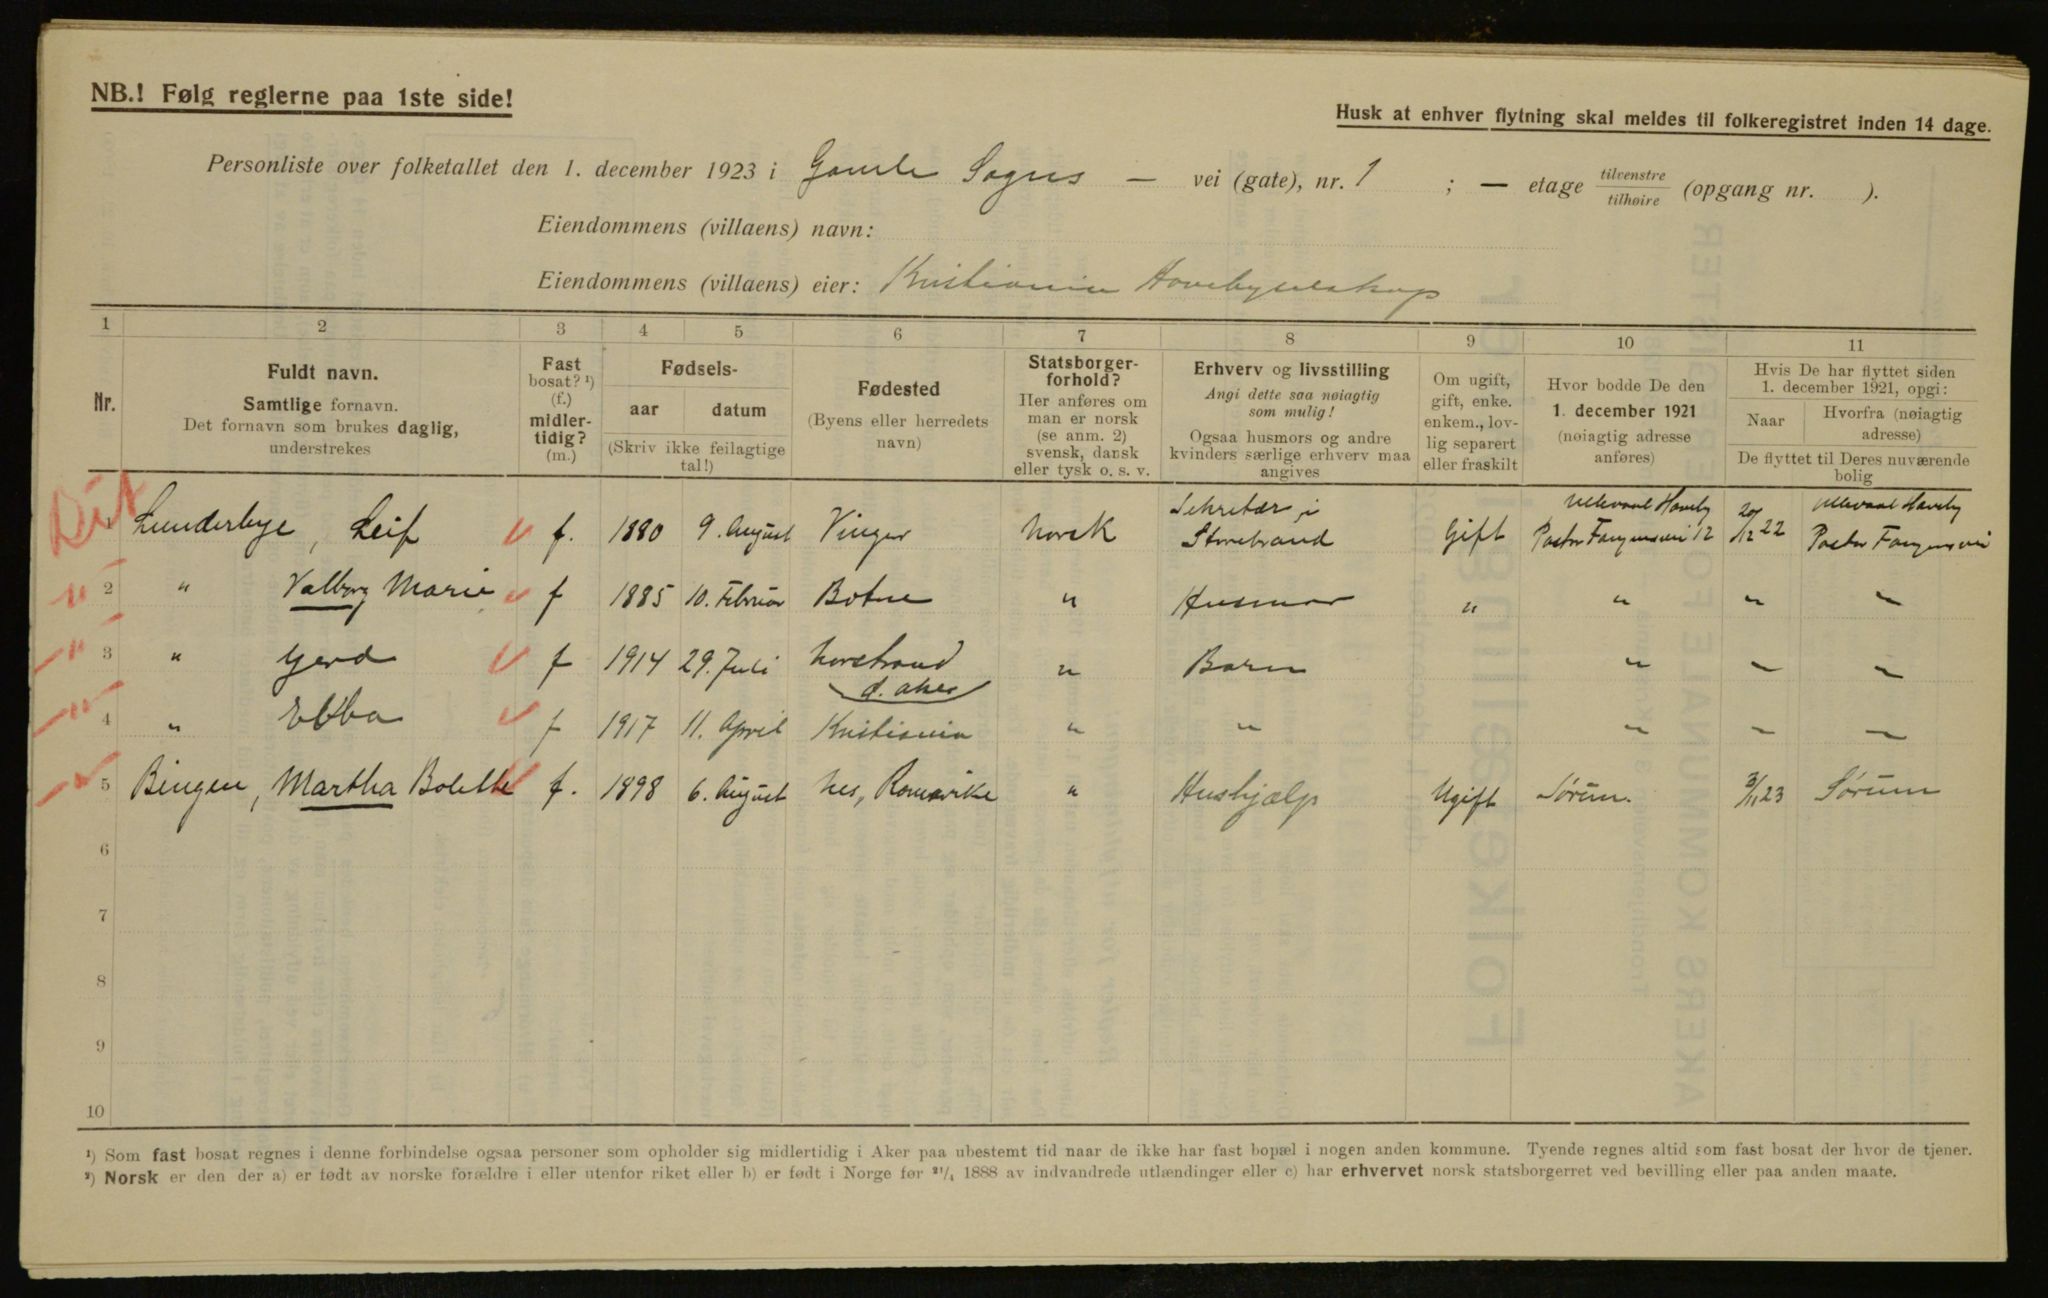 NB.! Følg reglerne paa 1ste side!
Husk at enhver flytning skal meldes til folkeregistret inden 14 dage.
Personliste over folketallet den 1. december 1923 i Gamle Sogns — vei (gate), nr. 1 ; — etage tilvenstre tilhøire (opgang nr. ).
Eiendommens (villaens) navn:
Eiendommens (villaens) eier: Kristiania Havebyselskap
1 2 3 4 5 6 7 8 9 10 11
Nr.
Fuldt navn.
Samtlige fornavn.
Det fornavn som brukes daglig,
understrekes
Fast
bosat? ¹)
(f.)
midler-
tidig?
(m.)
Fødsels-
aar datum
(Skriv ikke feilagtige
tal!)
Fødested
(Byens eller herredets
navn)
Statsborger-
forhold?
Her anføres om
man er norsk
(se anm. 2)
svensk, dansk
eller tysk o. s. v.
Erhverv og livsstilling
Angi dette saa nøiagtig
som mulig!
Ogsaa husmors og andre
kvinders særlige erhverv maa
angives
Om ugift,
gift, enke.
enkem., lov-
lig separert
eller fraskilt
Hvor bodde De den
1. december 1921
(nøiagtig adresse
anføres)
Hvis De har flyttet siden
1. december 1921, opgi:
Naar
Hvorfra (nøiagtig
adresse)
De flyttet til Deres nuværende
bolig
1 Lunderbye, Leif f. 1880 9. August Vinger Norsk Sekretær i Storebrand Gift Ullevaal Haveby Pastor Fangensvei 12 20/12 22 Ullevaal Haveby Pastor Fangensvei
2 " Valborg Marie f 1885 10. Februar Botne " Husmor " " " "
3 " Gerd f 1914 29. Juli Norstrand " Barn " " "
d. Aker
4 " Ebba f 1917 11. April Kristiania " " " " "
5 Bingen, Martha Bolette f. 1898 6. August Nes, Romerike " Hushjælp Ugift Sørum. 3/11 23 Sørum
6
7
8
9
10
¹) Som fast bosat regnes i denne forbindelse ogsaa personer som opholder sig midlertidig i Aker paa ubestemt tid naar de ikke har fast bopæl i nogen anden kommune. Tyende regnes altid som fast bosat der hvor de tjener.
²) Norsk er den der a) er født av norske forældre i eller utenfor riket eller b) er født i Norge før ²¹/₄ 1888 av indvandrede utlændinger eller c) har erhvervet norsk statsborgerret ved bevilling eller paa anden maate.